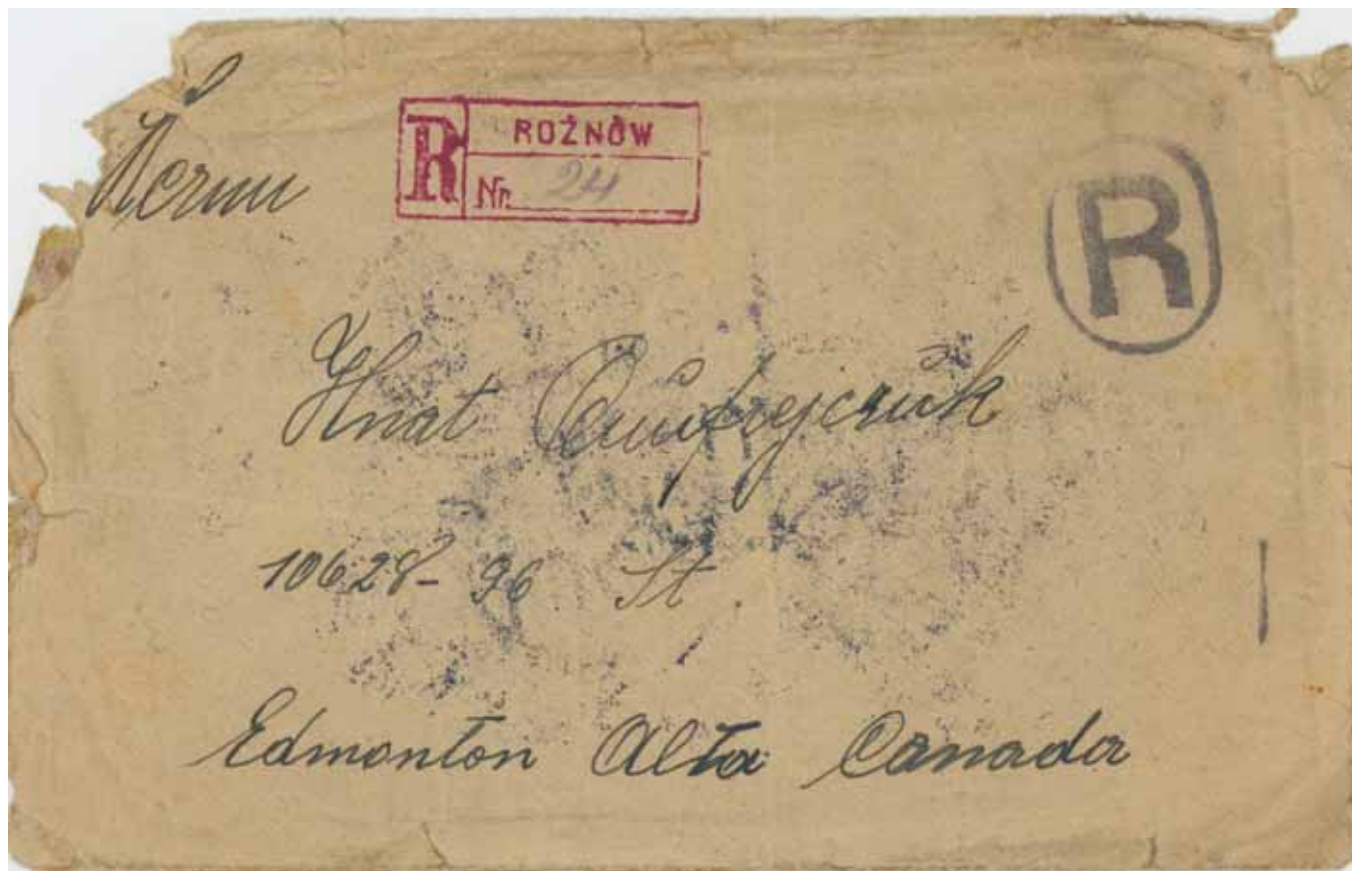 R ROŻNÓW
Nr. 24
R
Hnat Onufrejczuk
10628-96 St.
Edmonton Alta Canada